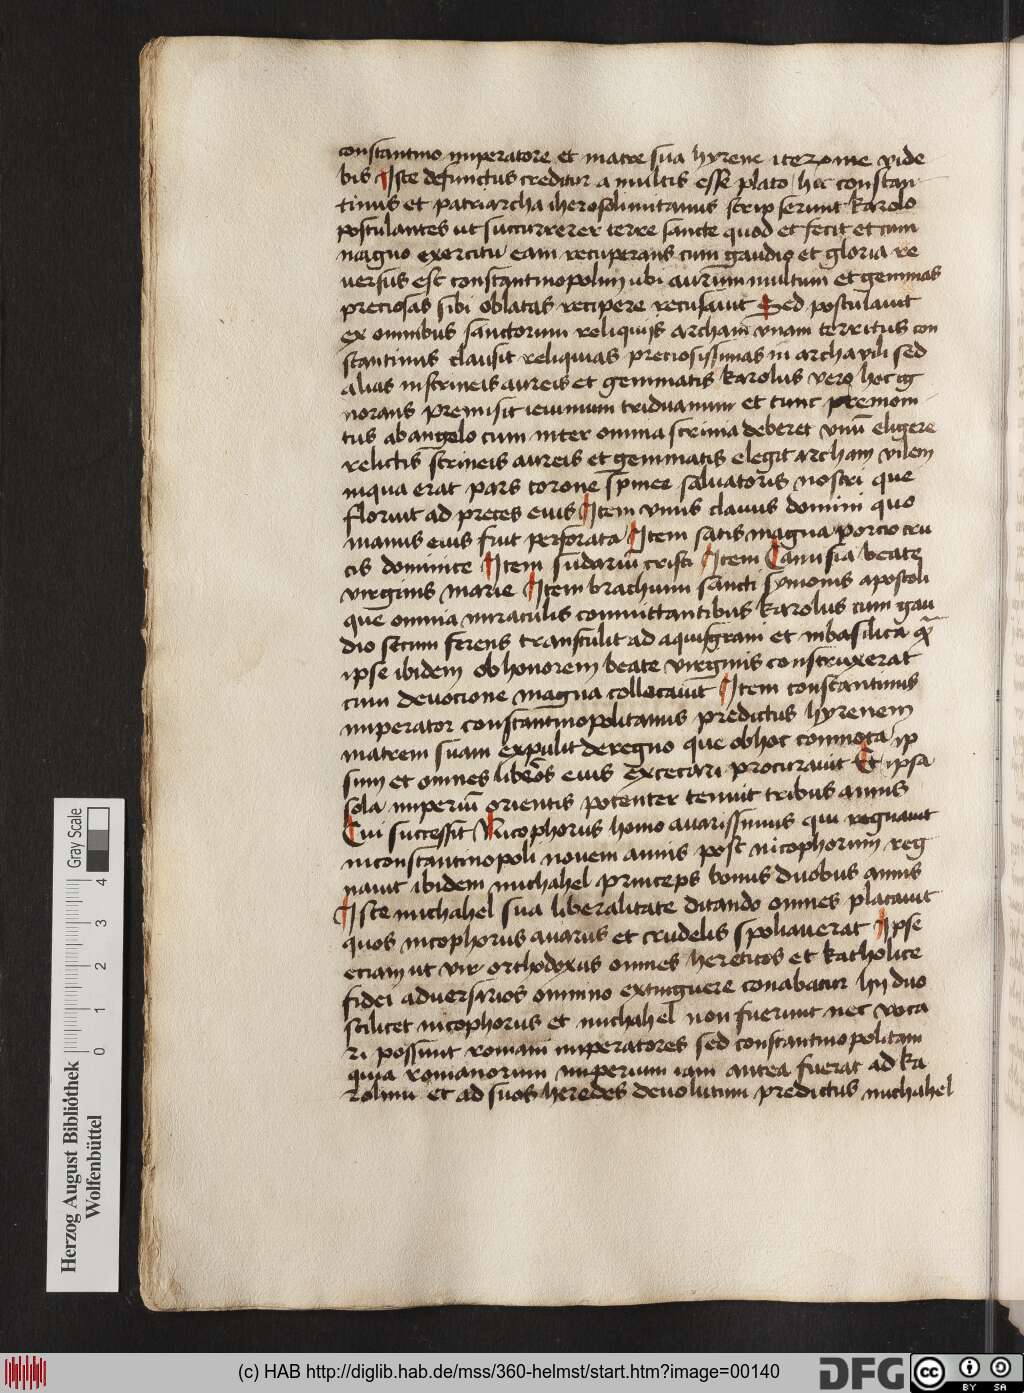 constantino imperatore et matre sua hyrene iterome vide
bis Iste defunctus creditur a multis esse plato hic constan
tinus et patriarcha iherosolimitanus scripserunt karolo
postulantes ut succurreret terre sancte quod et fecit et cum
magno exercitu eam recuperans cum gaudio et gloria re
versus est constantinopolim ubi aurum multum et gemmas
preciosas sibi oblatas recipere recusavit Sed postulavit
ex omnibus sanctorum reliquijs archam vnam territus con
stantinus clausit reliquias preciosissimas in archa vili sed
alias in scrineis aureis et gemmatis karolus vero hoc ig
norans premisit ieiunium triduanum et tunc premoni
tus ab angelo cum inter omnia scrinia deberet vnū eligere
relictis scrineis aureis et gemmatis elegit archam vilem
in qua erat pars corone spinee salvatoris nostri que
floruit ad preces eius Item vnus clavus domini quo
manus eius fuit perforata Item satis magna porcio cru
cis dominice Item sudariū cristi Item Camisia beate
virginis marie Item brachium sancti symonis apostoli
que omnia miraculis committantibus karolus cum gau
dio secum ferens transtulit ad aquisgrani et in basilica
ipse ibidem ob honorem beate virginis construxerat
cum devocione magna collocavit Item constantinus
imperator constantinopolitanus predictus hyrenem
matrem suam expulit de regno que ob hoc commota ip
sum et omnes liberos eius excecari procuravit Et ipsa
sola imperiū orientis potenter tenuit tribus annis
Cui successit Nicophorus homo avarissimus qui regnavit
in constantinopoli novem annis post nicophorum reg
navit ibidem michahel princeps bonus duobus annis
Iste michahel sua liberalitate ditando omnes placavit
quos nicophorus avarus et crudelis spoliaverat Ipse
eciam ut vir orthodoxus omnes hereticos et katholice
fidei adversarios omnino extinguere conabatur hij duo
scilicet nicophorus et michahel non fuerunt nec voca
ri possunt romani imperatores sed constantinopolitani
quia romanorum imperium iam antea fuerat ad ka
rolum et ad suos heredes devolutum predictus michahel
Gray Scale
0 1 2 3 4
Herzog August Bibliothek
Wolfenbüttel
(c) HAB http://diglib.hab.de/mss/360-helmst/start.htm?image=00140
DFG
cc
BY SA